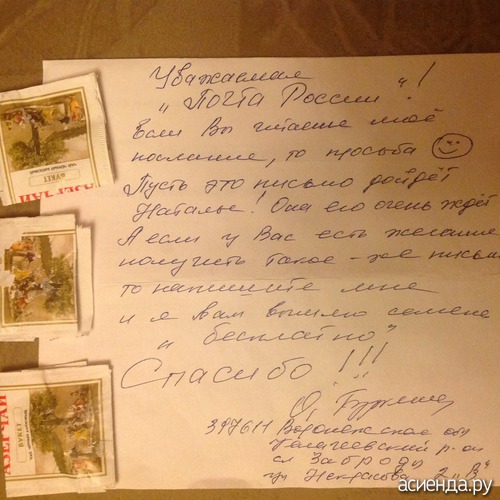 Уважаемая
„Почта России"!
Если Вы читаете моё
послание, то просьба
Пусть это письмо дойдёт
Наталье! Она его очень ждёт
А если у Вас есть желание
получить такое-же письмо
то напишите мне
и я Вам вышлю семена
„бесплатно"
Спасибо!!!
397611 Воронежская обл
Калачеевский р-он
сл Заброды
ул Некрасова
АЗЕРЧАЙ
БУКЕТ
АЗЕРЧАЙ
БУКЕТ
асиенда.ру